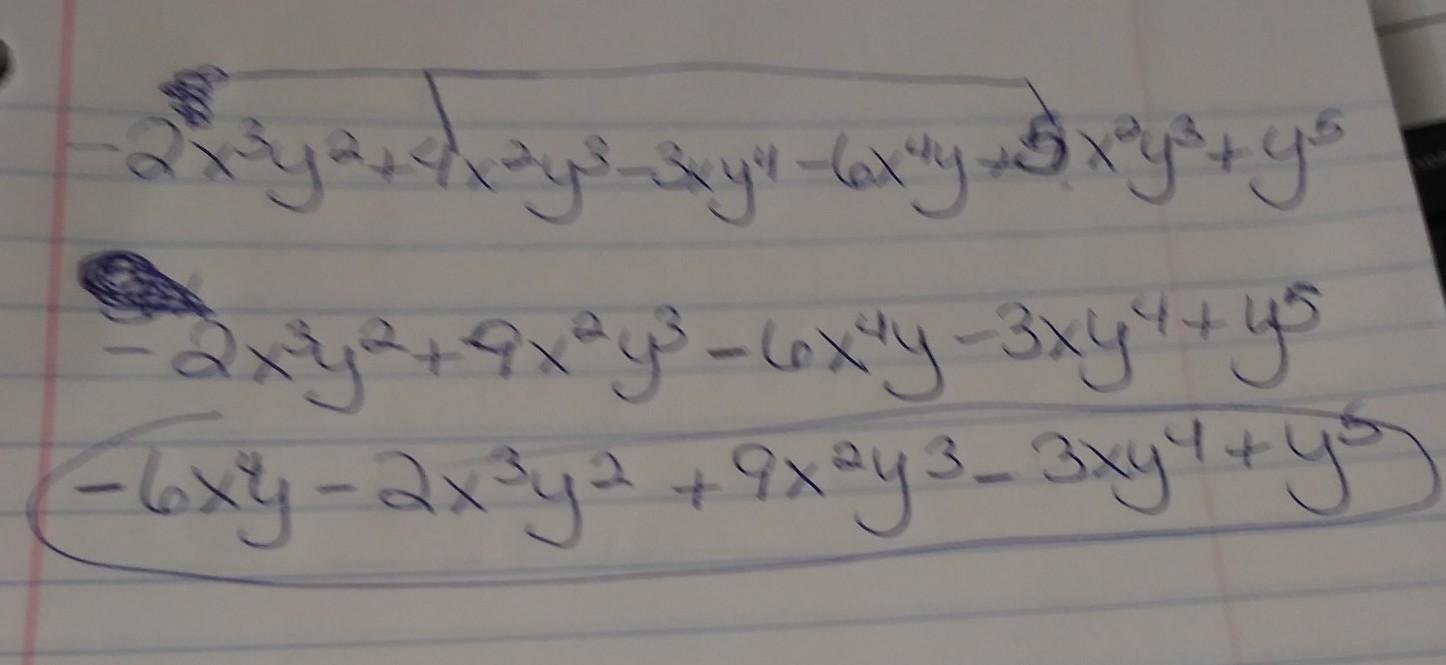 -2x³y²+4x²y³-3xy⁴-6x⁴y+5x²y³+y⁵
-2x³y²+9x²y³-6x⁴y-3xy⁴+y⁵
-6x⁴y-2x³y²+9x²y³-3xy⁴+y⁵